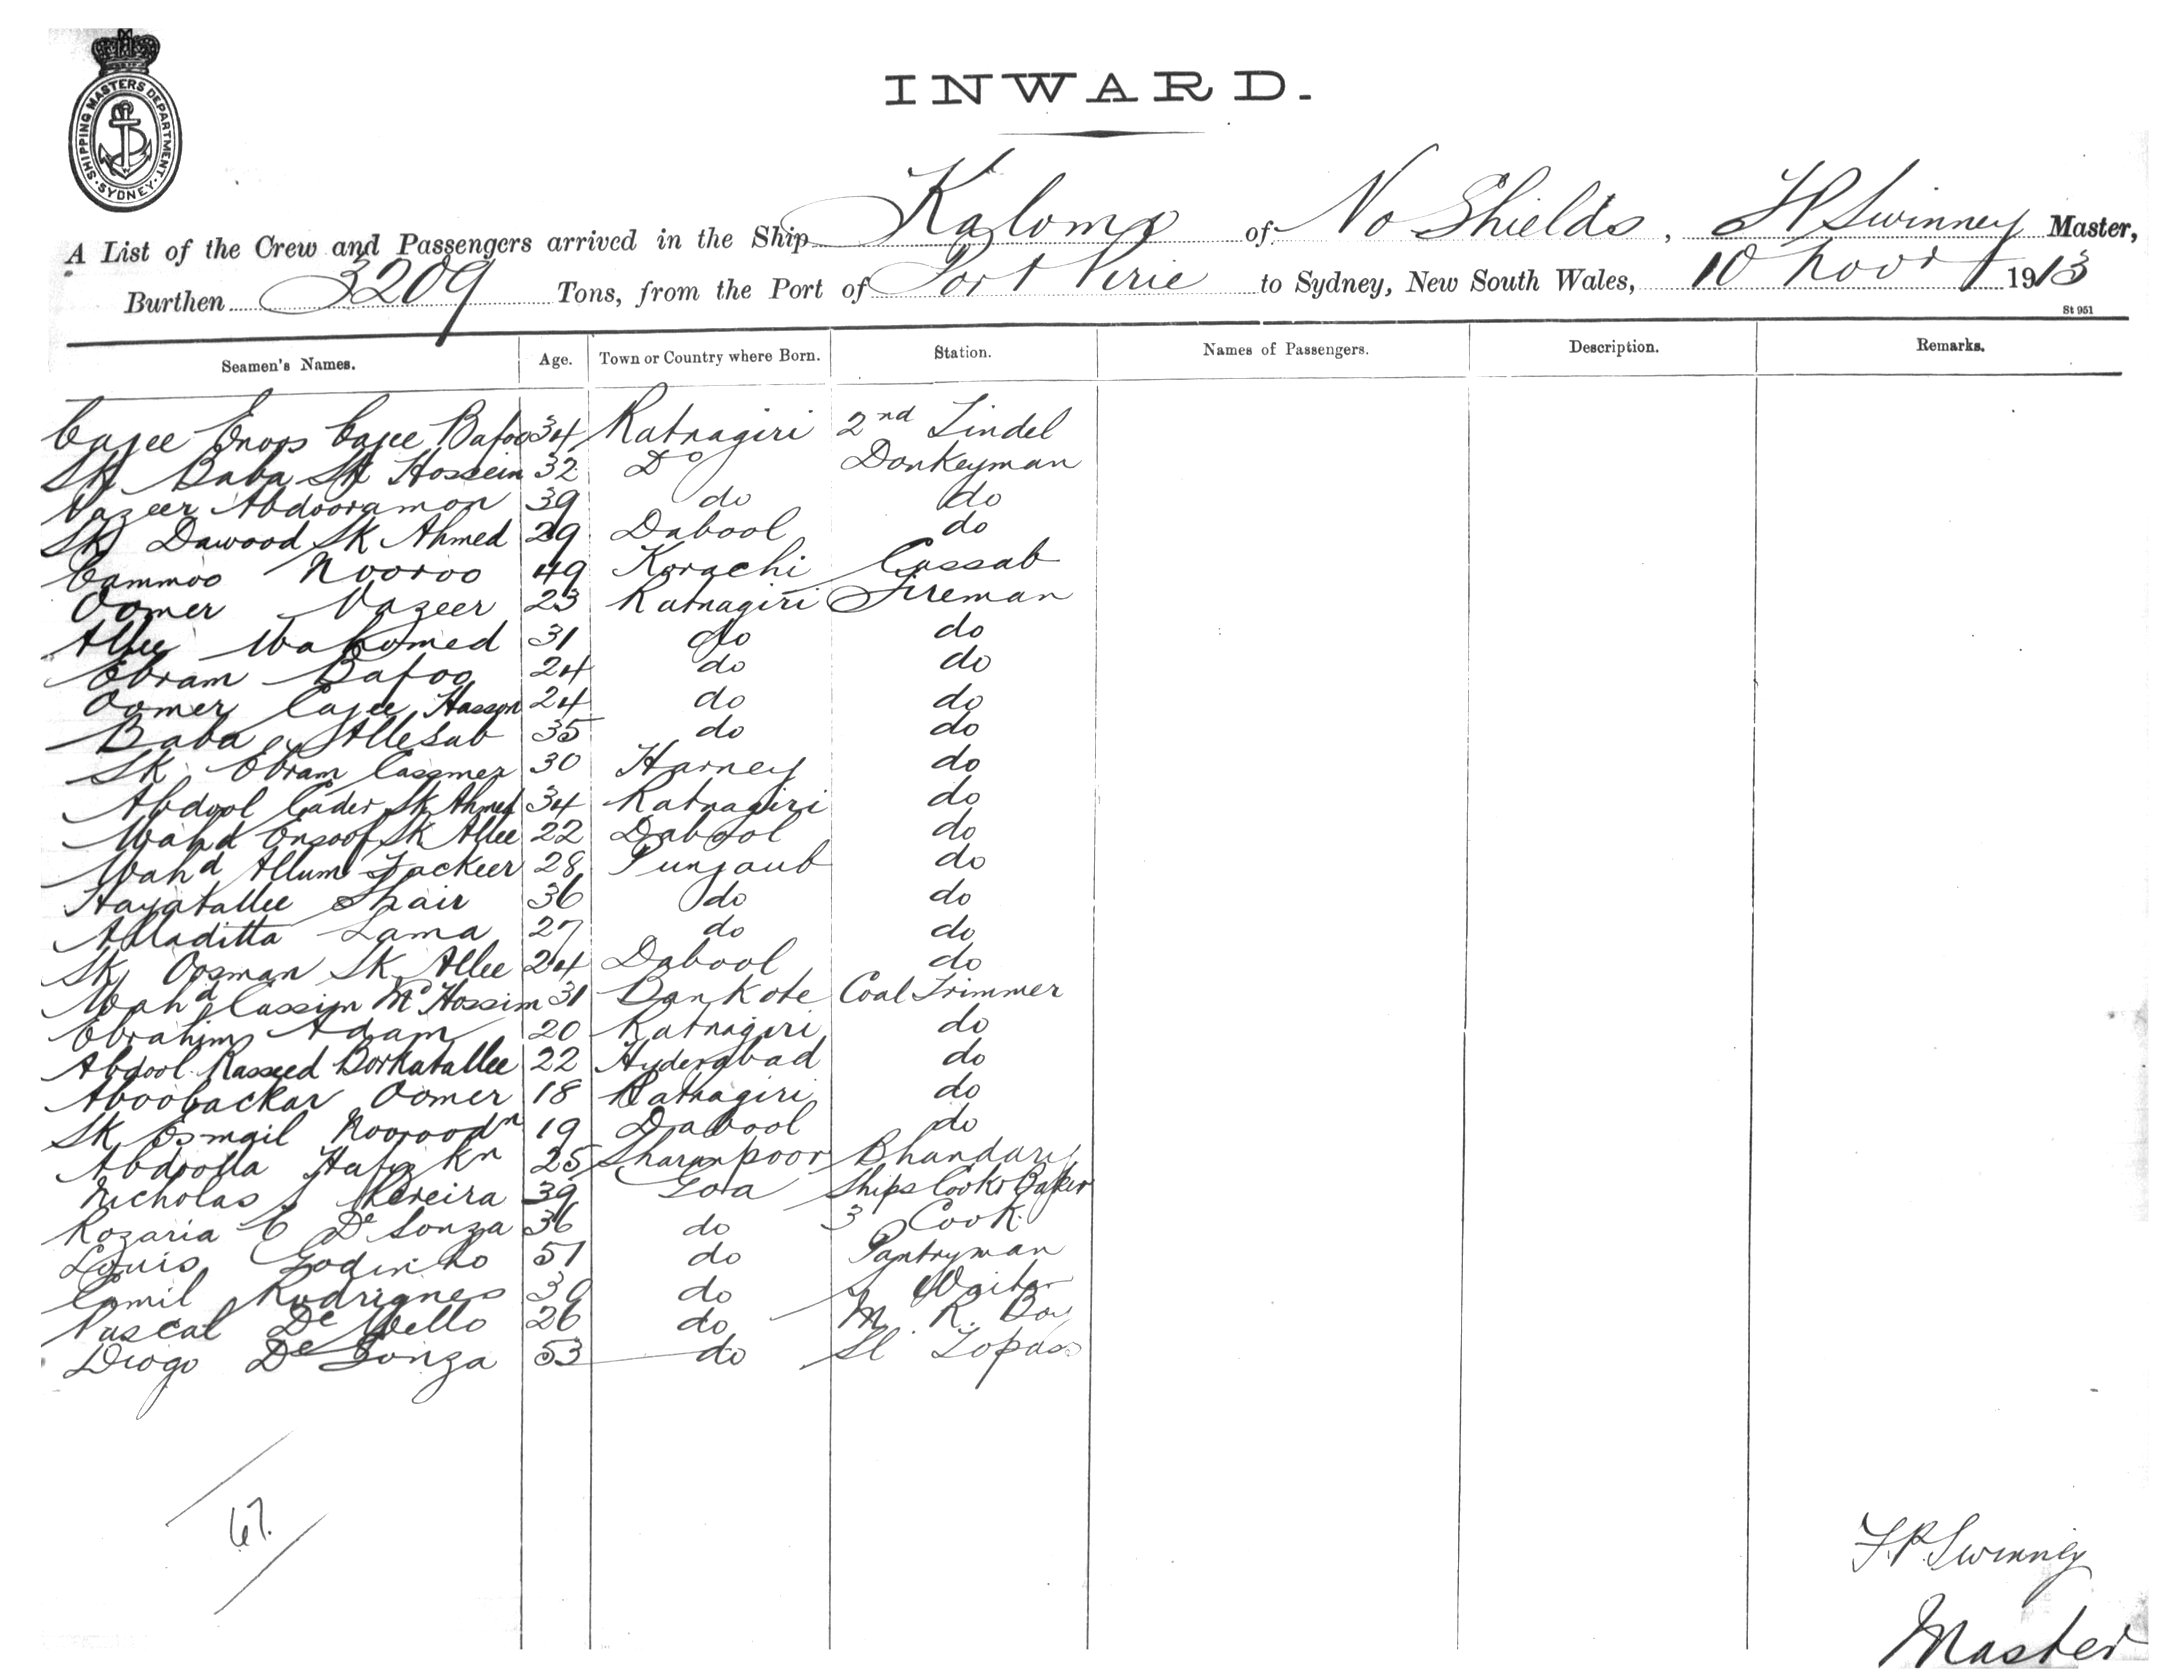 SHIPPING MASTERS DEPARTMENT. SYDNEY.
INWARD.
A List of the Crew and Passengers arrived in the Ship Kalomo of No Shields, F P Swinney Master,
Burthen 3209 Tons, from the Port of Port Pirie to Sydney, New South Wales, 10 Novr 1913
St 951
Seamen's Names. Age. Town or Country where Born. Station. Names of Passengers. Description. Remarks.
Cajee Enoos Cajee Bafoo 34 Ratnagiri 2nd Tindel
Sk Baba Sk Hossein 32 Do Donkeyman
Vazeer Abdooramon 39 do do
Sk Dawood Sk Ahmed 29 Dabool do
Cammoo Nooroo 49 Korachi Cassab
Oomer Vazeer 23 Ratnagiri Fireman
Allee Mahomed 31 do do
Ebram Bafoo 24 do do
Oomer Cajee Hasson 24 do do
Baba Allesab 35 do do
Sk Ebram Cassmer 30 Harney do
Abdool Cader Sk Ahmed 34 Ratnagiri do
Mahd Ensoof Sk Allee 22 Dabool do
Mahd Allum Fackeer 28 Punjaub do
Hayatallee Shair 36 do do
Alladitta Lama 27 do do
Sk Oosman Sk Allee 24 Dabool do
Mahd Cassim Md Hossim 31 Bankote Coal Trimmer
Ebrahim Adam 20 Ratnagiri do
Abdool Rasseed Borkatallee 22 Hyderabad do
Aboobackar Oomer 18 Ratnagiri do
Sk Esmail Nooroodn 19 Dabool do
Abdoolla Hafiz Kn 25 Sharanpoor Bhandary
Nicholas Pereira 39 Goa Ships Cook & Baker
Rozaria C De Souza 36 do 3 Cook
Louis Godinho 51 do Pantryman
Camil Rodrigues 30 do S Waiter
Pascal De Mello 26 do M. R. Boy
Diogo De Souza 53 do Sl Topass
67.
F.P. Swinney
Master